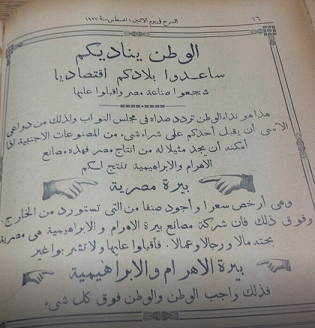 ١٦
الوطن يناديكم
ساعدوا بلادكم اقتصاديا
شجعوا صناعة مصر واقبلوا عليها
هذا هو نداء الوطن تردد صداه في مجلس النواب ولذلك من دواعى
الأسى أن يقبل أحدكم على شراء شىء من المصنوعات الأجنبية اذا
أمكنه أن يجد مثيلا له من انتاج مصر فهذه مصانع
الاهرام والابراهيمية تنتج لكم
بيرة مصرية
وهى أرخص سعرا وأجود صنفا من التى تستورد من الخارج.
وفوق ذلك فان شركة مصانع بيرة الاهرام والابراهيمية هى مصرية
بحتة مالا ورجالا وعمالا. فأقبلوا عليها ولا تشربوا غير
بيرة الاهرام والابراهيمية
فذلك واجب الوطن والوطن فوق كل شىء